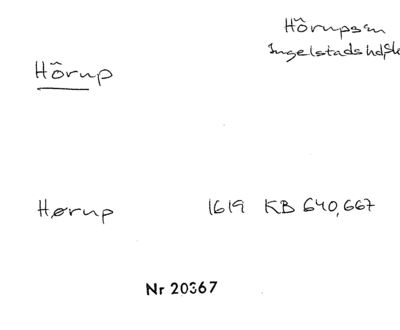 Hörups sn
Ingelstads hd, Sk
Hörup
Hørup 1619 KB 640, 667
Nr 20367